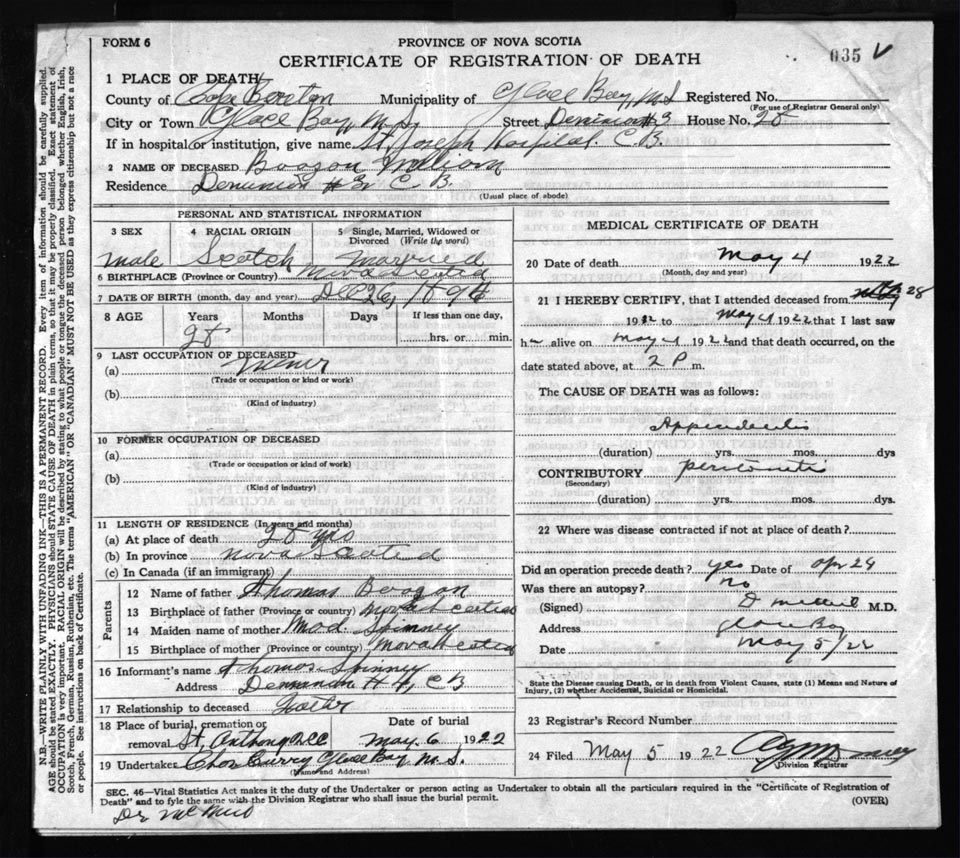 FORM 6
PROVINCE OF NOVA SCOTIA
035 V
CERTIFICATE OF REGISTRATION OF DEATH
1 PLACE OF DEATH
County of Cape Breton Municipality of Glace Bay, N.S Registered No.
(For use of Registrar General only)
City or Town Glace Bay, N.S. Street Dominion #3 House No. 28
If in hospital or institution, give name St Joseph Hospital. C.B.
2 NAME OF DECEASED William
Residence Dominion C B.
(Usual place of abode)
PERSONAL AND STATISTICAL INFORMATION
3 SEX 4 RACIAL ORIGIN 5 Single, Married, Widowed or Divorced (Write the word)
Male Scotch Married
6 BIRTHPLACE (Province or Country) Nova Scotia
7 DATE OF BIRTH (month, day and year) Dec 26, 1894
8 AGE Years Months Days If less than one day,
28 hrs. or min.
9 LAST OCCUPATION OF DECEASED
(a) Miner
(Trade or occupation or kind or work)
(b)
(Kind of industry)
10 FORMER OCCUPATION OF DECEASED
(a)
(Trade or occupation or kind or work)
(b)
(Kind of industry)
11 LENGTH OF RESIDENCE (In years and months)
(a) At place of death 28 yrs
(b) In province Nova Scotia
(c) In Canada (if an immigrant)
Parents
12 Name of father Thomas
13 Birthplace of father (Province or country) Nova Scotia
14 Maiden name of mother Spinney
15 Birthplace of mother (Province or country) Nova Scotia
16 Informant's name Thomas Spinney
Address Dominion C B
17 Relationship to deceased
18 Place of burial, cremation or removal St. Anthony
Date of burial May. 6 1922
19 Undertaker Curry Glace Bay N.S.
(Name and Address)
MEDICAL CERTIFICATE OF DEATH
20 Date of death May 4 1922
(Month, day and year)
21 I HEREBY CERTIFY, that I attended deceased from 28
1922 to May 4 1922 that I last saw
h alive on May 4 1922 and that death occurred, on the
date stated above, at 2 P m.
The CAUSE OF DEATH was as follows:
Appendicitis
(duration) yrs. mos. dys
CONTRIBUTORY peritonitis
(Secondary)
(duration) yrs. mos. dys.
22 Where was disease contracted if not at place of death?
Did an operation precede death? yes Date of Apr 29
Was there an autopsy? No
(Signed) M.D.
Address Glace Bay
Date May 5/22
State the Disease causing Death, or in death from Violent Causes, state (1) Means and Nature of
Injury, (2) whether Accidental, Suicidal or Homicidal.
23 Registrar's Record Number
24 Filed May 5 1922
Division Registrar
SEC. 46—Vital Statistics Act makes it the duty of the Undertaker or person acting as Undertaker to obtain all the particulars required in the "Certificate of Registration of
Death" and to fyle the same with the Division Registrar who shall issue the burial permit.
(OVER)
Dr
N.B.—WRITE PLAINLY WITH UNFADING INK—THIS IS A PERMANENT RECORD. Every item of information should be carefully supplied.
AGE should be stated EXACTLY. PHYSICIANS should STATE CAUSE OF DEATH in plain terms, so that it may be properly classified. Exact statement of
OCCUPATION is very important. RACIAL ORIGIN will be described by stating to what people or tongue the deceased person belonged whether English, Irish,
Scotch, French, German, Russian, Ruthenian, etc. The terms "AMERICAN" OR "CANADIAN" MUST NOT BE USED as they express citizenship but not a race
or people. See instructions on back of Certificate.